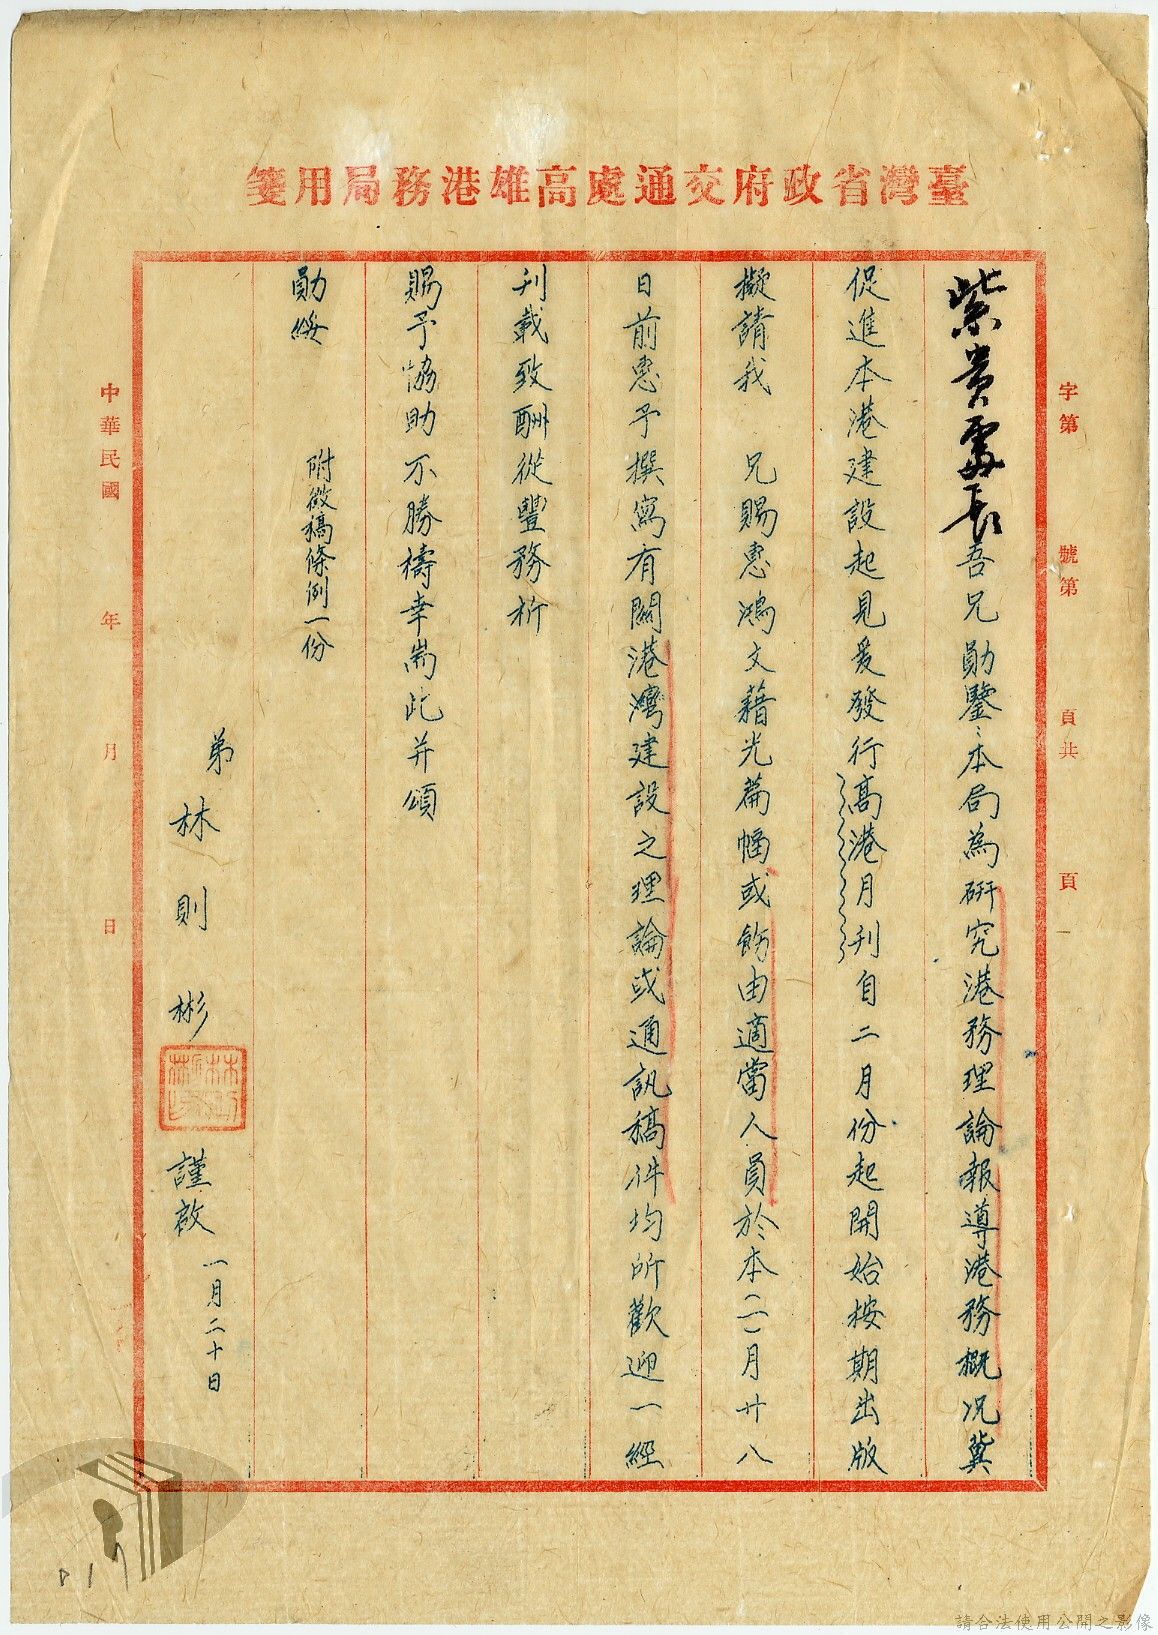 臺灣省政府交通處高雄港務局用箋
字第　號第　頁共　頁
紫貴處長吾兄勛鑒：本局為研究港務理論報導港務概況冀
促進本港建設起見爰發行高港月刊自二月份起開始按期出版
擬請我　兄賜惠鴻文藉光篇幅或飭由適當人員於本（一）月廿八
日前惠予撰寫有關港灣建設之理論或通訊稿件均所歡迎一經
刊載致酬從豐務祈
賜予協助不勝禱幸耑此并頌
勛綏　附徵稿條例一份
弟　林則彬　謹啟　一月二十日
中華民國　年　月　日
請合法使用公開之影像